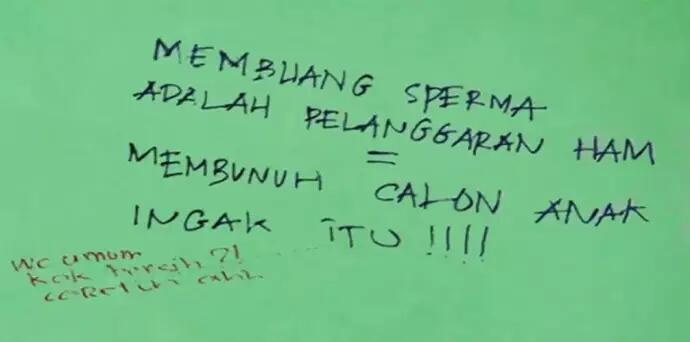 MEMBUANG SPERMA
ADALAH PELANGGARAN HAM
=
MEMBUNUH CALON ANAK
INGAK ITU !!!!
WC umum
kok bersih?!
coretin ahh